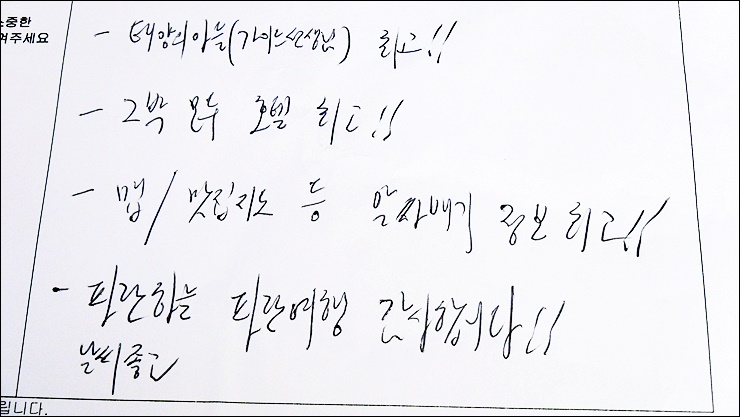 소중한
여주세요
- 태양의아들(가이드선생님) 최고!!
- 2박 모두 호텔 최고!!
- 맵/맛집지도 등 알짜배기 정보 최고!!
- 파란하늘 파란여행 감사합니다!!
날씨좋고
립니다.